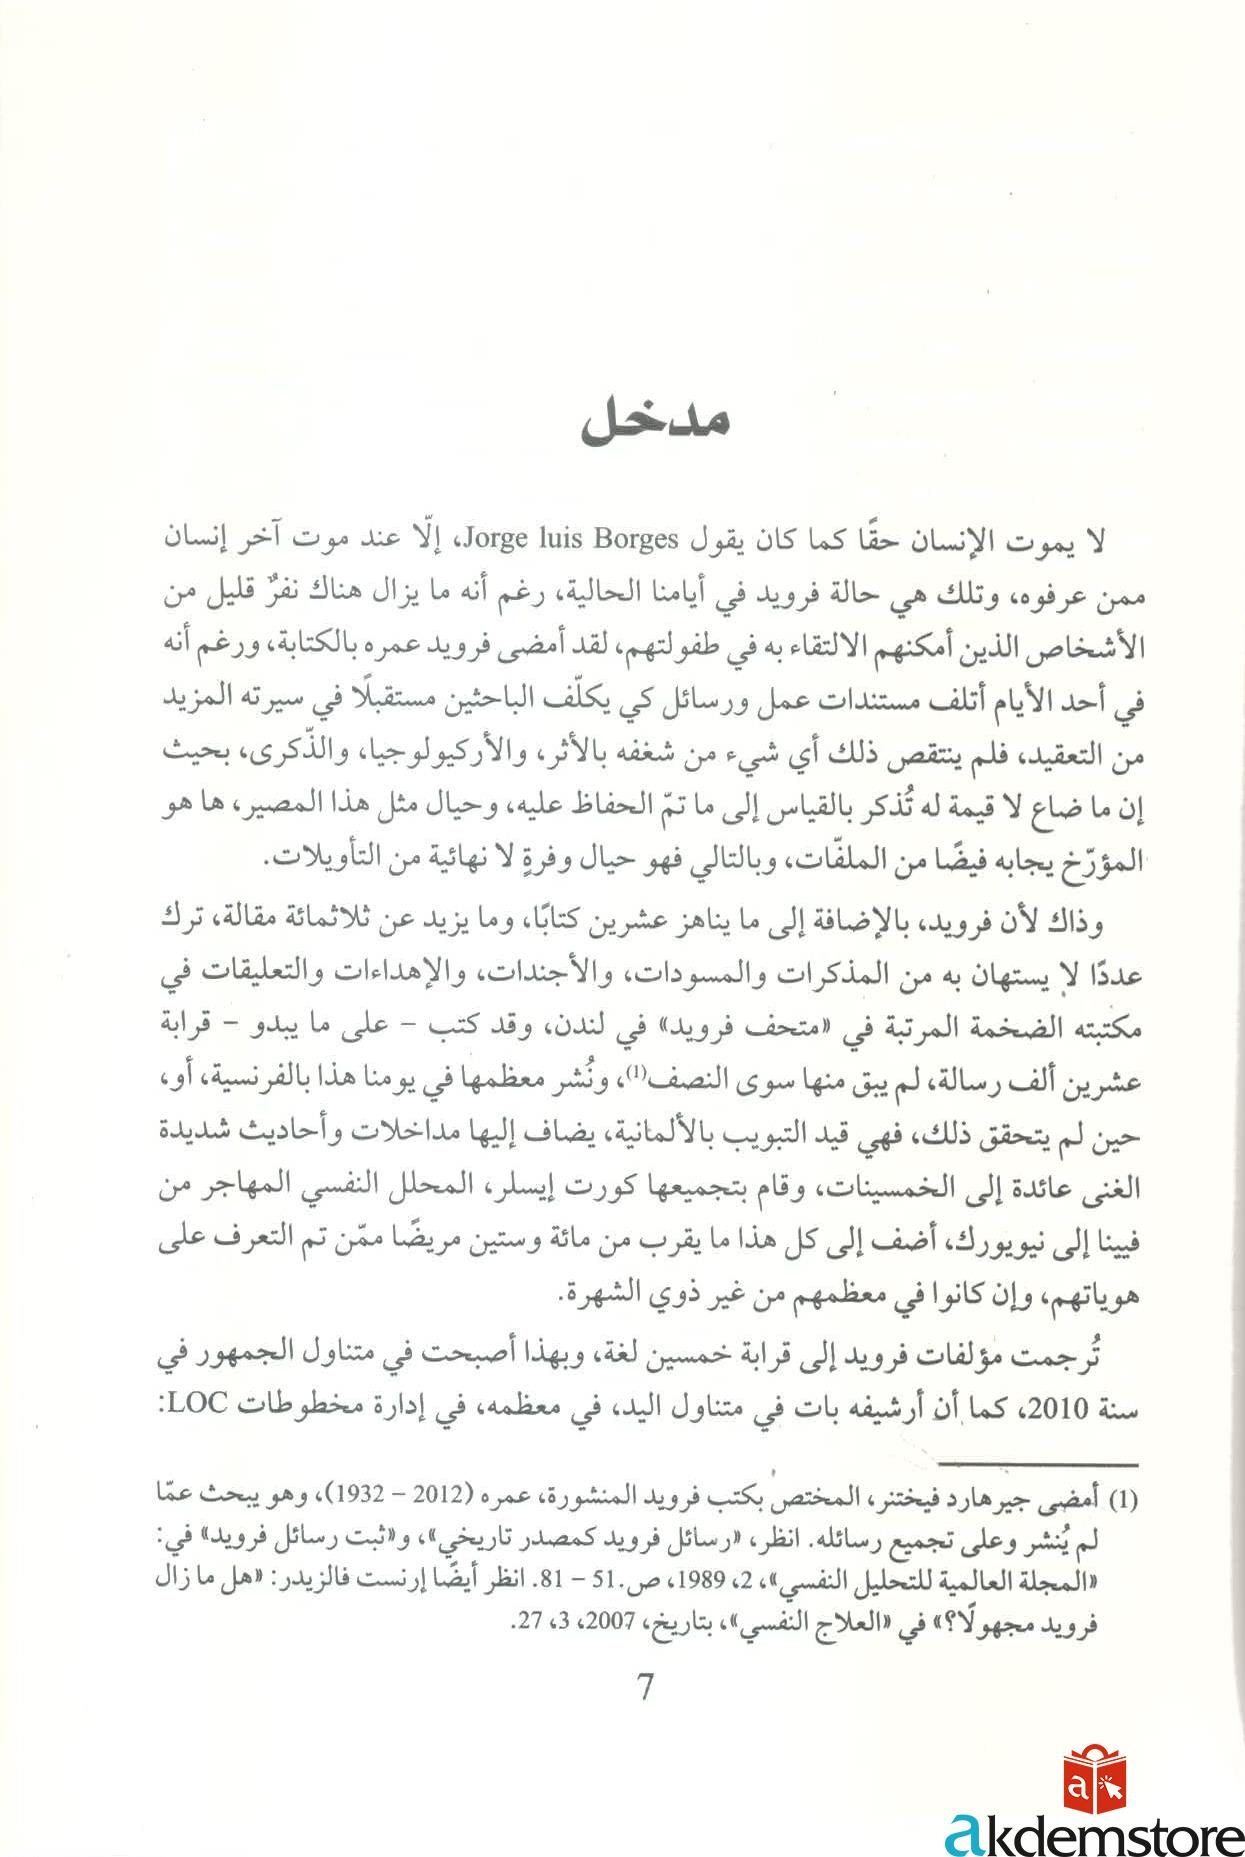 مدخل
لا يموت الإنسان حقًا كما كان يقول Jorge luis Borges، إلّا عند موت آخر إنسان
ممن عرفوه، وتلك هي حالة فرويد في أيامنا الحالية، رغم أنه ما يزال هناك نفرٌ قليل من
الأشخاص الذين أمكنهم الالتقاء به في طفولتهم، لقد أمضى فرويد عمره بالكتابة، ورغم أنه
في أحد الأيام أتلف مستندات عمل ورسائل كي يكلّف الباحثين مستقبلًا في سيرته المزيد
من التعقيد، فلم ينتقص ذلك أي شيء من شغفه بالأثر، والأركيولوجيا، والذّكرى، بحيث
إن ما ضاع لا قيمة له تُذكر بالقياس إلى ما تمّ الحفاظ عليه، وحيال مثل هذا المصير، ها هو
المؤرّخ يجابه فيضًا من الملفّات، وبالتالي فهو حيال وفرةٍ لا نهائية من التأويلات.
وذاك لأن فرويد، بالإضافة إلى ما يناهز عشرين كتابًا، وما يزيد عن ثلاثمائة مقالة، ترك
عددًا لا يستهان به من المذكرات والمسودات، والأجندات، والإهداءات والتعليقات في
مكتبته الضخمة المرتبة في «متحف فرويد» في لندن، وقد كتب – على ما يبدو – قرابة
عشرين ألف رسالة، لم يبق منها سوى النصف(1)، ونُشر معظمها في يومنا هذا بالفرنسية، أو،
حين لم يتحقق ذلك، فهي قيد التبويب بالألمانية، يضاف إليها مداخلات وأحاديث شديدة
الغنى عائدة إلى الخمسينات، وقام بتجميعها كورت إيسلر، المحلل النفسي المهاجر من
فيينا إلى نيويورك، أضف إلى كل هذا ما يقرب من مائة وستين مريضًا ممّن تم التعرف على
هوياتهم، وإن كانوا في معظمهم من غير ذوي الشهرة.
تُرجمت مؤلفات فرويد إلى قرابة خمسين لغة، وبهذا أصبحت في متناول الجمهور في
سنة 2010، كما أن أرشيفه بات في متناول اليد، في معظمه، في إدارة مخطوطات LOC:
(1) أمضى جيرهارد فيختنر، المختص بكتب فرويد المنشورة، عمره (2012 – 1932)، وهو يبحث عمّا
لم يُنشر وعلى تجميع رسائله. انظر، «رسائل فرويد كمصدر تاريخي»، و«ثبت رسائل فرويد» في:
«المجلة العالمية للتحليل النفسي»، 2، 1989، ص.51 – 81. انظر أيضًا إرنست فالزيدر: «هل ما زال
فرويد مجهولًا؟» في «العلاج النفسي»، بتاريخ، 2007، 3، 27.
7
a
akdemstore